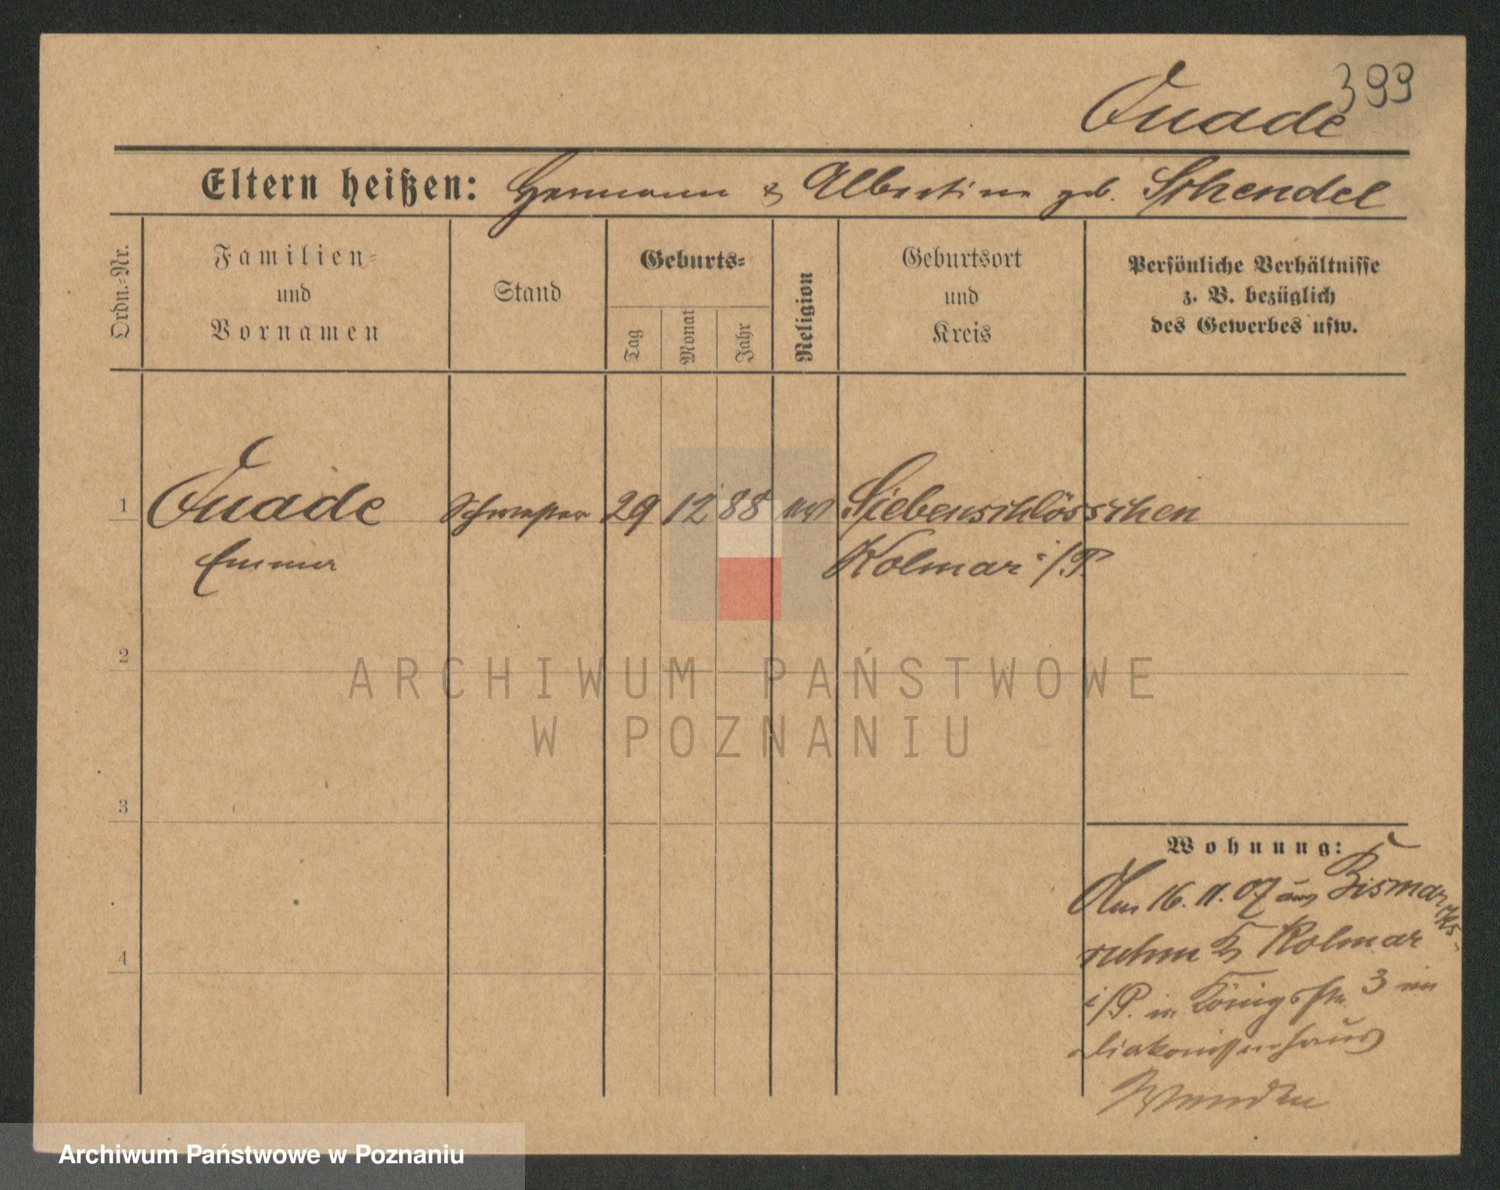 399
Quade
Eltern heißen: Hermann & Albertine geb. Schendel
Ordn.-Nr.
Familien-
und
Vornamen
Stand
Geburts-
Tag
Monat
Jahr
Religion
Geburtsort
und
Kreis
Persönliche Verhältnisse
z. B. bezüglich
des Gewerbes usw.
1 Quade Schwester 29 12 88 ev Siebenschlösschen
Emma Kolmar i/P.
2
ARCHIWUM PAŃSTWOWE
W POZNANIU
3
Wohnung:
Am 16.11.07 aus Bismarcks-
ruhm Kr Kolmar
i/P. in Königstr. 3 im
Diakonissenhaus
4
Archiwum Państwowe w Poznaniu